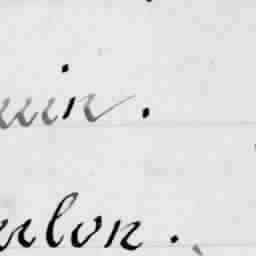 uin.
ulon.